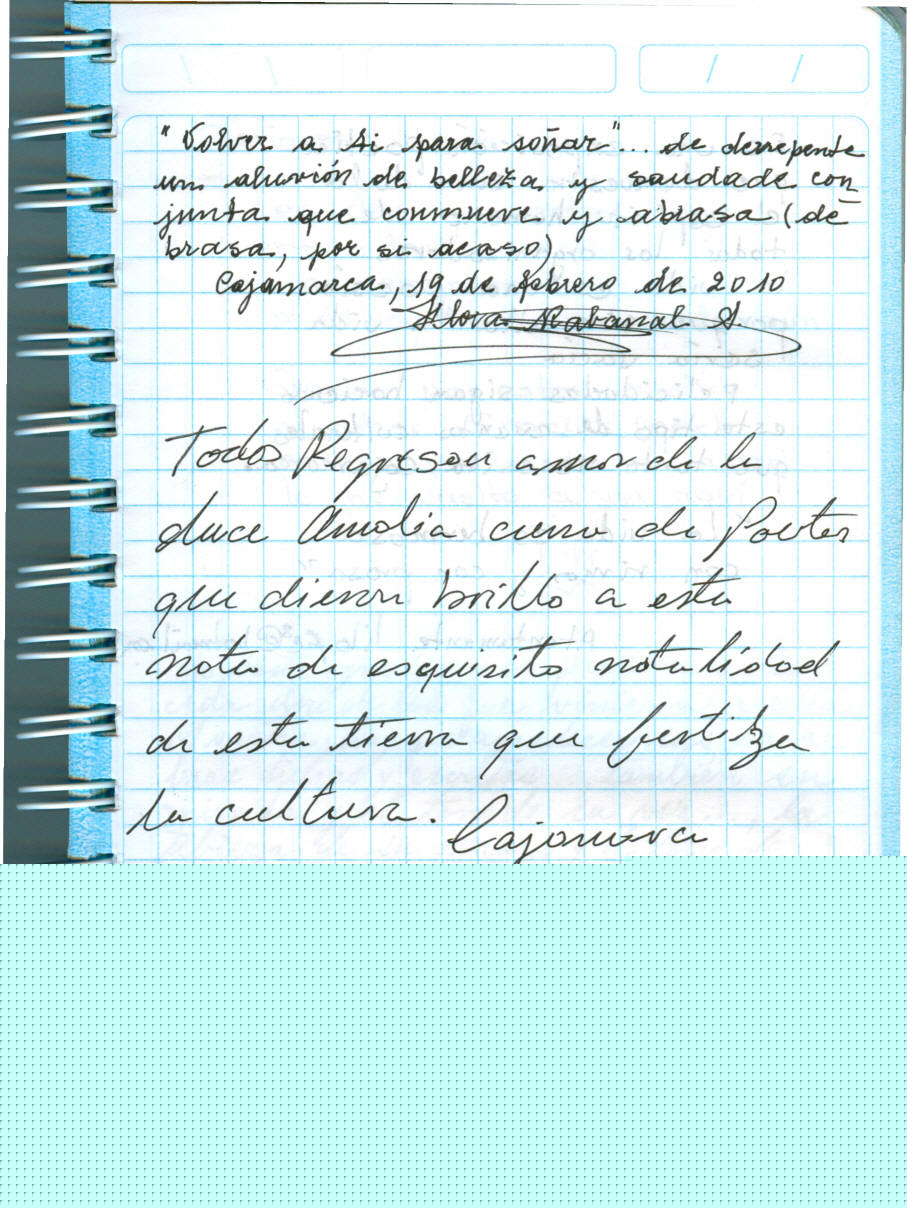 "Volver a ti para soñar"... de derrepente
un aluvión de belleza y saudade con
junta que conmueve y abrasa (de
brasa, por si acaso)
Cajamarca, 19 de febrero de 2010
Flora Rabanal A.
Todos Regresan amor de la
duce Amalia cuna de Poetas
que dieron brillo a esta
nota de esquisito natalidad
de esta tierra que fertiliza
la cultura.
Cajamarca